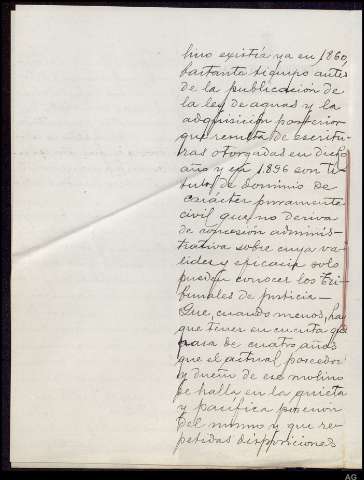 lino existía ya en 1860,
bastante tiempo antes
de la publicación de
la ley de aguas y la
adquisición posterior
que resulta de escritu-
ras otorgadas en dicho
año y en 1896 son tí-
tulos de dominio de
carácter puramente
civil que no deriva
de concesión adminis-
trativa sobre cuya va-
lidez y eficacia solo
pueden conocer los Tri-
bunales de justicia—
Que, cuando menos, hay
que tener en cuenta que
hasa de cuatro años
que el actual poseedor
y dueño de ese molino
se halla en la quieta
y pacífica posesion
del mismo y que re-
petidas disposiciones
AG